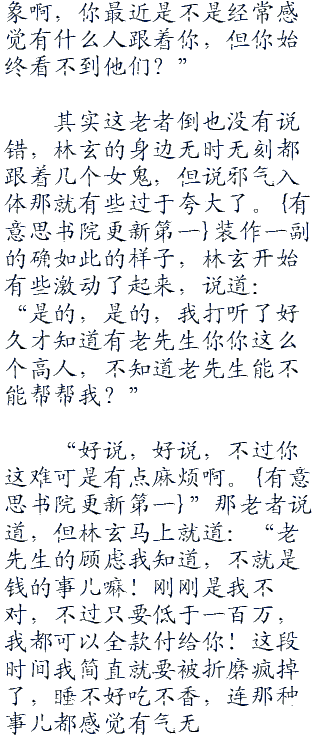 象啊，你最近是不是经常感
觉有什么人跟着你，但你始
终看不到他们？”
其实这老者倒也没有说
错，林玄的身边无时无刻都
跟着几个女鬼，但说邪气入
体那就有些过于夸大了。{有
意思书院更新第一}装作一副
的确如此的样子，林玄开始
有些激动了起来，说道：
“是的，是的，我打听了好
久才知道有老先生你你这么
个高人，不知道老先生能不
能帮帮我？”
“好说，好说，不过你
这难可是有点麻烦啊。{有意
思书院更新第一}”那老者说
道，但林玄马上就道：“老
先生的顾虑我知道，不就是
钱的事儿嘛！刚刚是我不
对，不过只要低于一百万，
我都可以全款付给你！这段
时间我简直就要被折磨疯掉
了，睡不好吃不香，连那种
事儿都感觉有气无